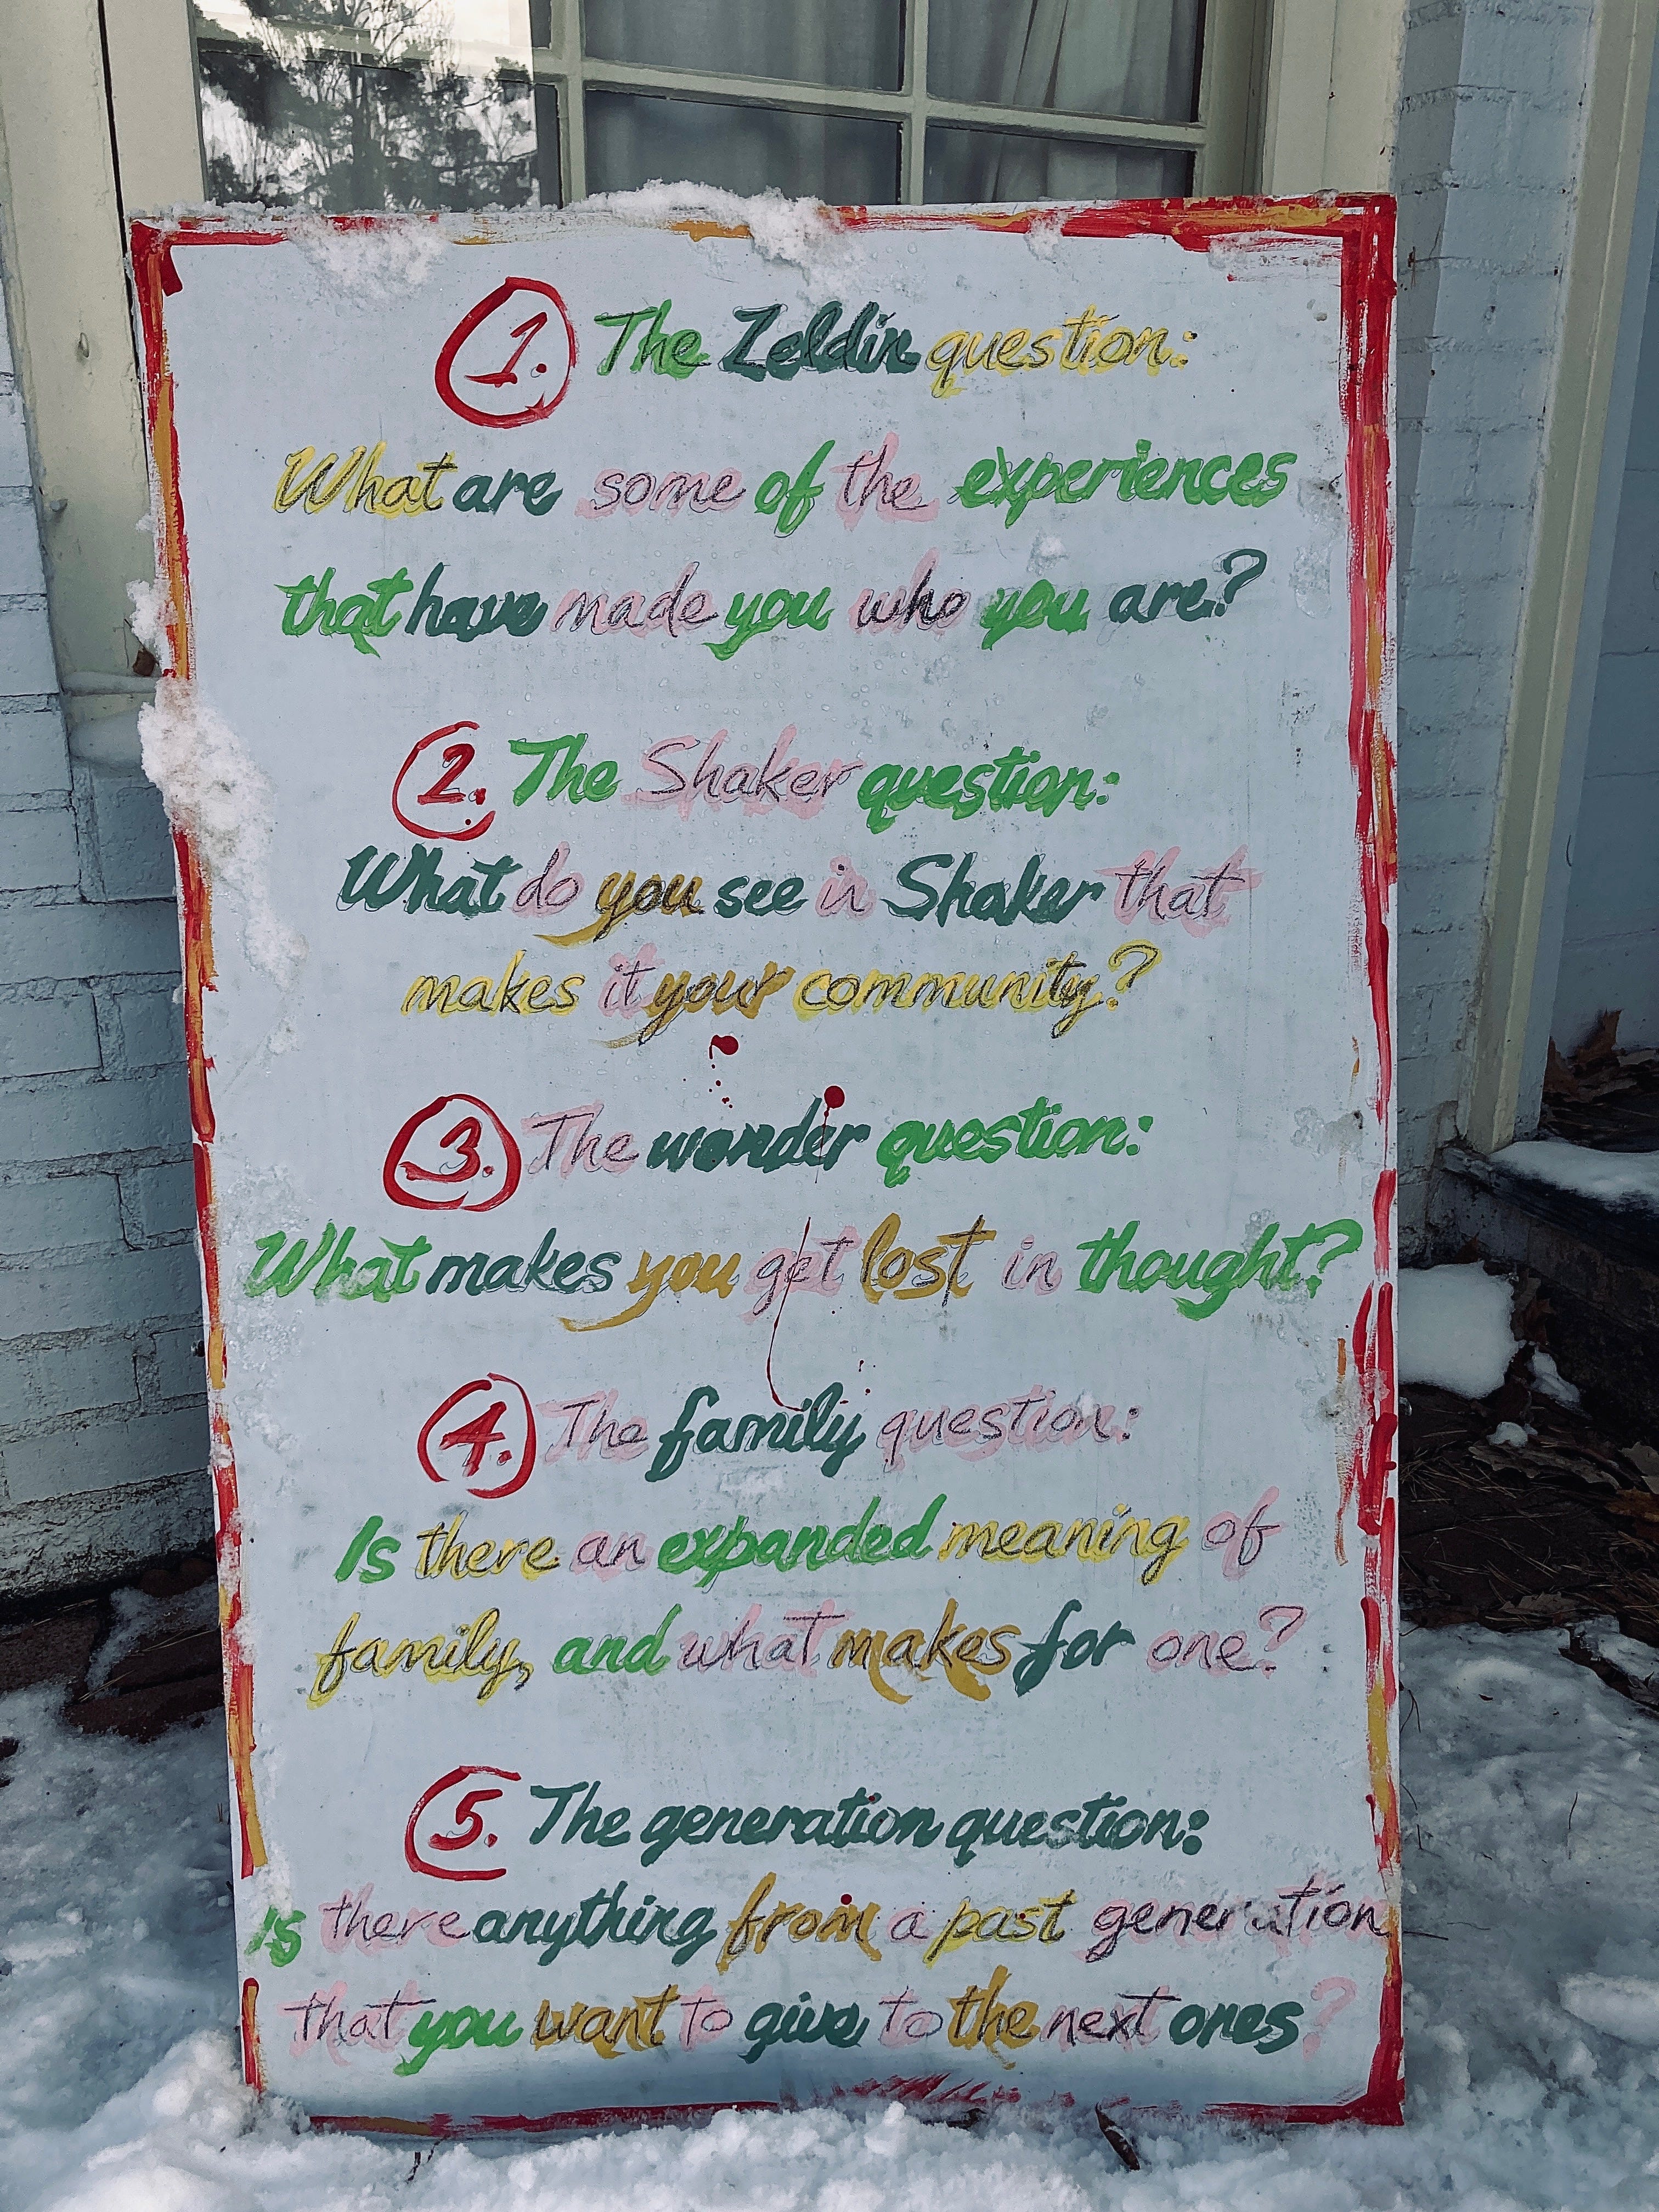 1. The Zeldin question:
What are some of the experiences
that have made you who you are?
2. The Shaker question:
What do you see in Shaker that
makes it your community?
3. The wonder question:
What makes you get lost in thought?
4. The family question:
Is there an expanded meaning of
family, and what makes for one?
5. The generation question:
Is there anything from a past generation
that you want to give to the next ones?